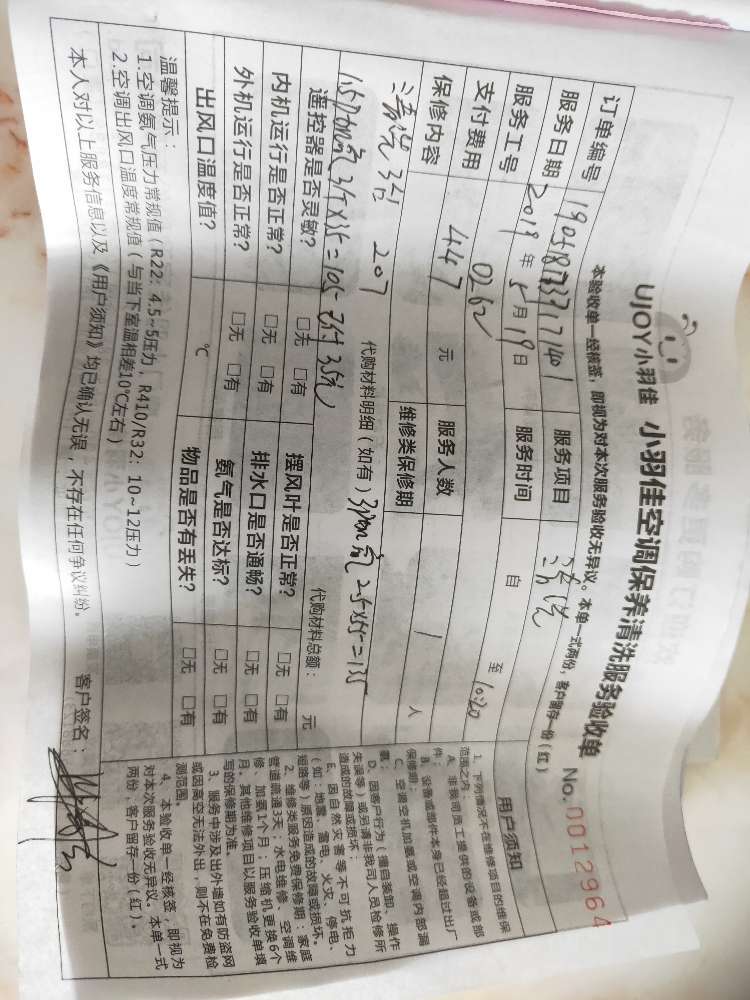 UJOY小羽佳 小羽佳空调保养清洗服务验收单
No.0012964
本验收单一经核签,即视为对本次服务验收无异议。本单一式两份,客户留存一份(红)
订单编号 服务项目 清洗
服务日期 2019年5月19日 服务时间 自 至 10:20
服务工号 0262
支付费用 447 元 服务人数 1 人
保修内容 维修类保修期
清洗3台 207
代购材料明细(如有)
代购材料总额: 元
遥控器是否灵敏? □无 □有 摆风叶是否正常? □无 □有
内机运行是否正常? □无 □有 排水口是否通畅? □无 □有
外机运行是否正常? □无 □有 氨气是否达标? □无 □有
出风口温度值? ℃ 物品是否有丢失? □无 □有
温馨提示:
1.空调氨气压力常规值(R22:4.5~5压力,R410/R32:10~12压力)
2.空调出风口温度常规值(与当下室温相差10℃左右)
本人对以上服务信息以及《用户须知》均已确认无误,不存在任何争议纠纷。 客户签名:
用户须知
1、下列情况不在维修项目的维保
范围之内:
A、非我司员工提供的设备或部
件;
B、设备或部件本身已经超过出厂
保修期;
C、空调空机加氟或空调内部漏
氟;
D、因客户行为(擅自装卸、操作
失误等)或另请非我司人员检修所
造成的故障或损坏;
E、因自然灾害等不可抗拒力
(如:地震、雷电、火灾、停电、
短路等)原因造成的故障或损坏。
2、维修类服务免费保修期:家庭
管道疏通3天;水电维修、空调维
修、加氟1个月;压缩机更换6个
月。其他维修项目以服务验收单填
写的保修期为准。
3、服务中涉及出外墙如有防盗网
或因高空无法外出,则不在免费检
测范围。
4、本验收单一经核签,即视为
对本次服务验收无异议。本单一式
两份,客户留存一份(红)。